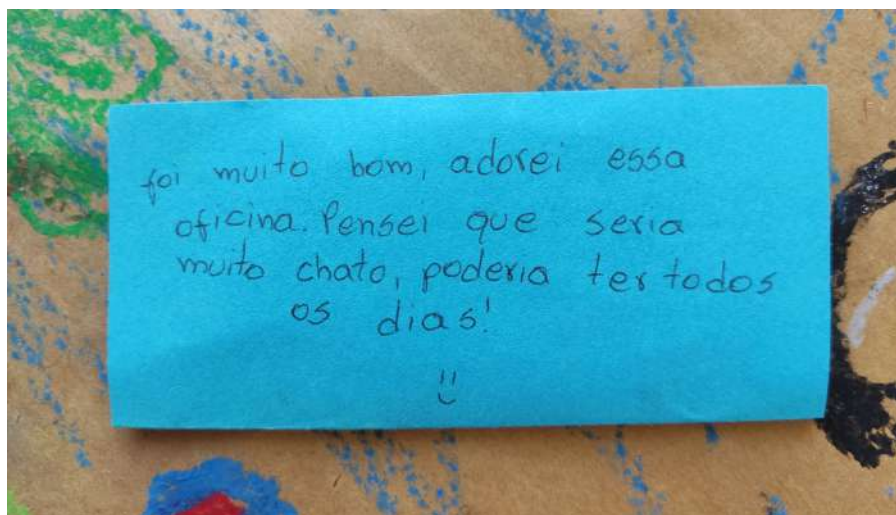 foi muito bom, adorei essa
oficina. Pensei que seria
muito chato, poderia ter todos
os dias!